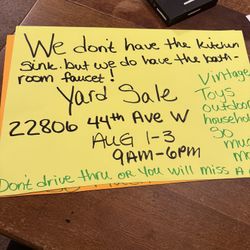 We don't have the kitchen
sink. but we do have the bath-
room faucet!
Yard Sale
22806 44th Ave W
AUG 1-3
9AM-6PM
Vintage
Toys
outdoor
household
So
much
Don't drive thru or You will miss A